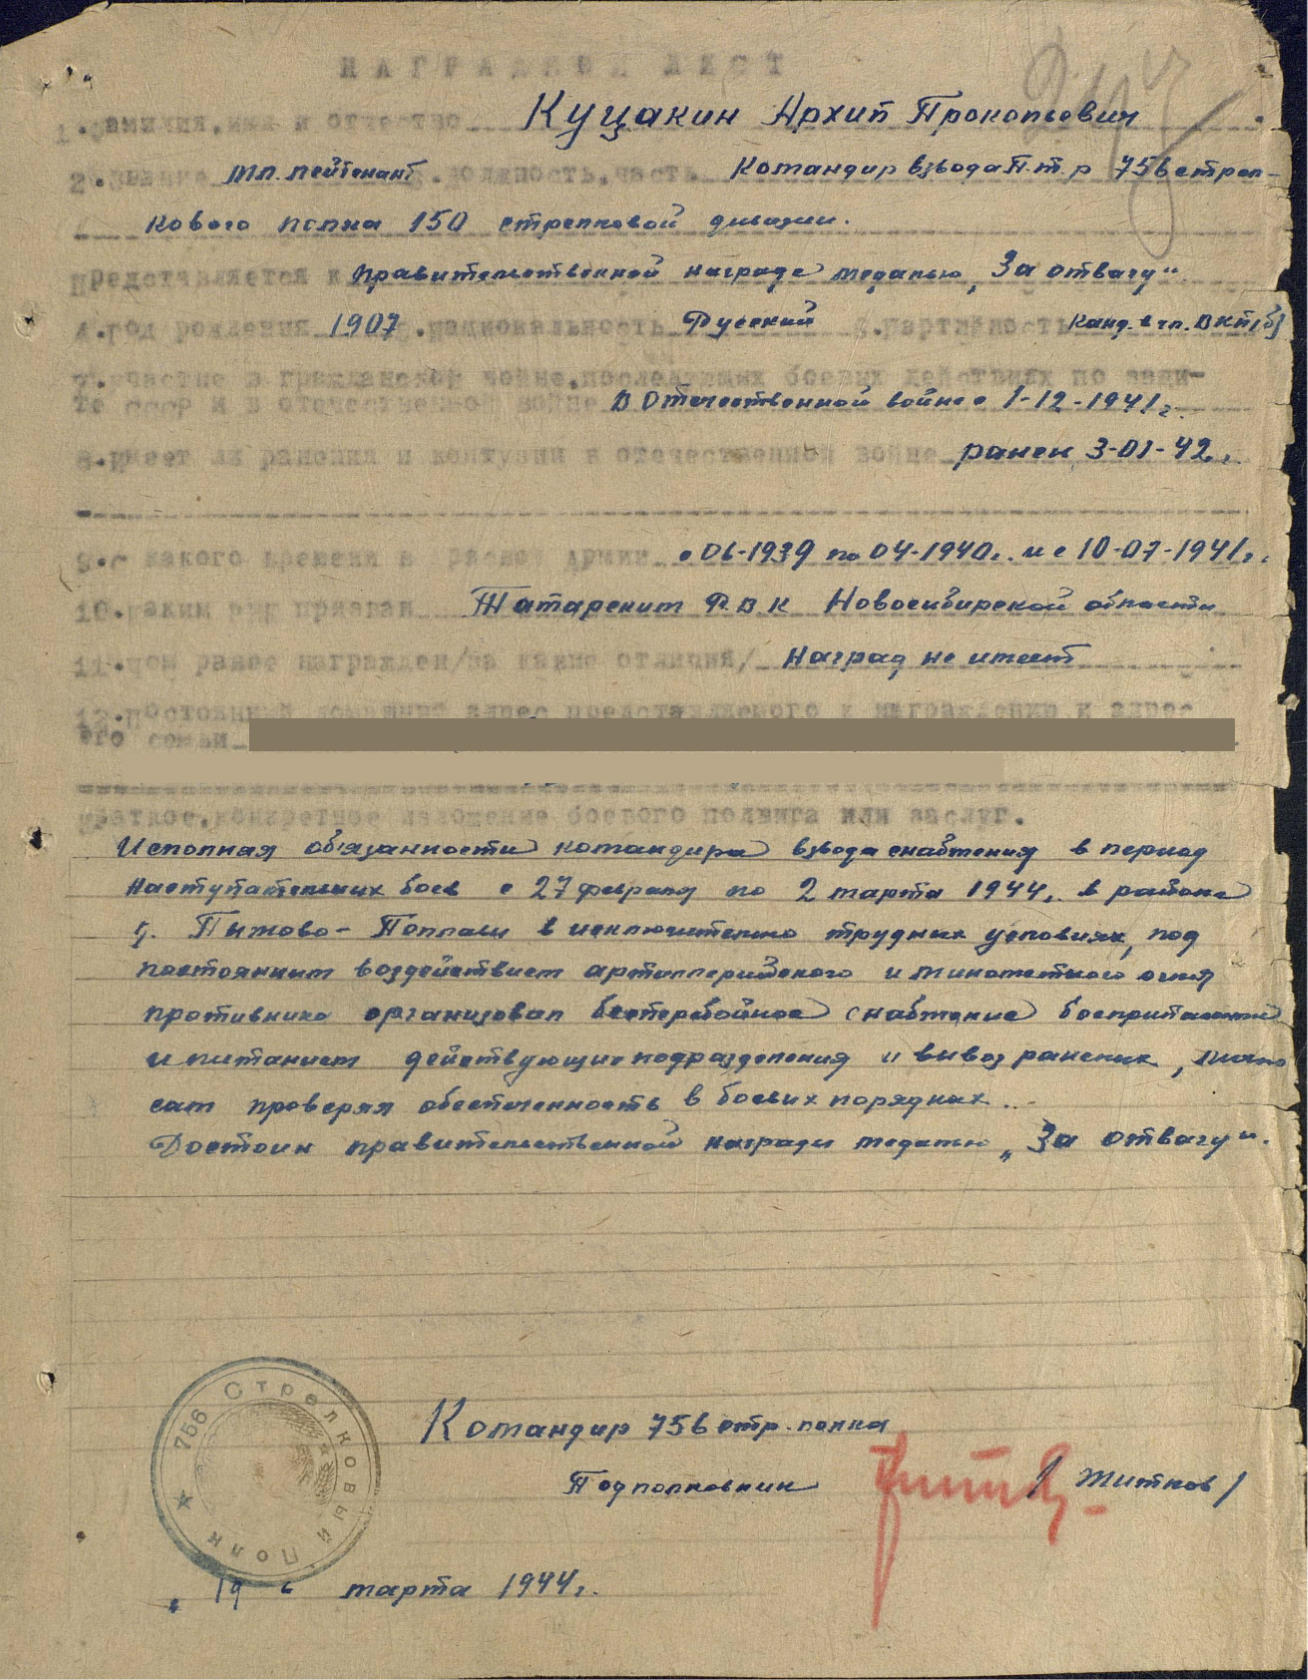 НАГРАДНОЙ ЛИСТ
1. Фамилия, имя и отчество Куцакин Архип Прокопьевич
2. Звание мл. лейтенант 3. должность, часть Командир взвода П.т.р 756 стрел-
кового полка 150 стрелковой дивизии.
Представляется к правительственной награде медалью „За отвагу“
4. Год рождения 1907 5. национальность Русский 6. партийность Канд. в чл. ВКП(б)
7. участие в гражданской войне, последующих боевых действиях по защи-
те СССР и в отечественной войне В Отечественной войне с 1-12-1941 г.
8. Имеет ли ранения и контузии в отечественной войне ранен 3-01-42 г.
9. С какого времени в Красной Армии с 06-1939 по 04-1940 г. и с 10-07-1941 г.
10. Каким РВК призван Татарским Р.В.К Новосибирской области
11. Чем ранее награжден/за какие отличия/ Наград не имеет
12. Постоянный домашний адрес представляемого к награждению и адрес
его семьи
Краткое, конкретное изложение боевого подвига или заслуг.
Исполняя обязанности командира взвода снабжения в период
наступательных боев с 27 февраля по 2 марта 1944 г. в районе
д. Пыжово - в исключительно трудных условиях, под
постоянным воздействием артиллерийского и минометного огня
противника организовал бесперебойное снабжение боеприпасами
и питанием действующие подразделения и вывоз раненых, лично
сам проверял обеспеченность в боевых порядках...
Достоин правительственной награды медалью „За отвагу“.
Командир 756 стр. полка
Подполковник / Житков /
★ 756 Стрелковый Полк
„19“ марта 1944 г.